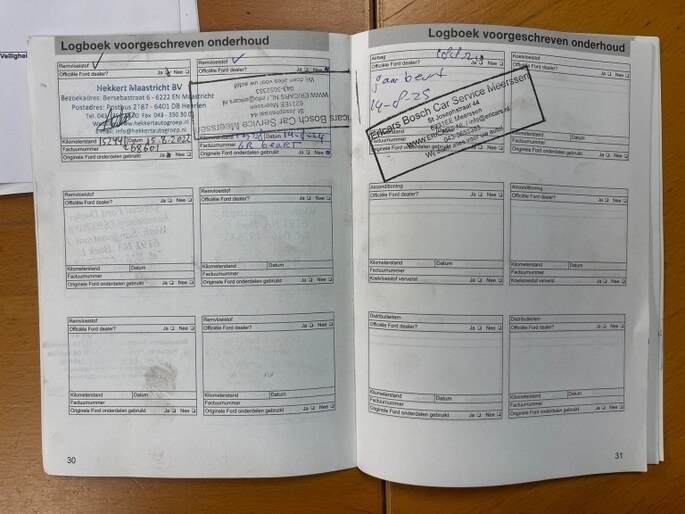 Veiligheid
Logboek voorgeschreven onderhoud
Remvloeistof
Officiële Ford dealer? Ja Nee
Hekkert Maastricht BV
Bezoekadres: Bersebastraat 6 - 6222 EN Maastricht
Postadres: Postbus 2787 - 6401 DB Heerlen
Kilometerstand 15244 Datum 15-8-2022
Factuurnummer
Originele Ford onderdelen gebruikt Ja Nee
Remvloeistof
Officiële Ford dealer? Ja Nee
Ericars Bosch Car Service Meerssen
St Josephstraat 44
6231EE Meerssen
WWW.ERICARS.NL / info@ericars.nl
043-3655283
Wij doen alles voor uw auto!
Factuurnummer GR BEURT
Originele Ford onderdelen gebruikt Ja Nee
Remvloeistof
Officiële Ford dealer? Ja Nee
Kilometerstand Datum
Factuurnummer
Originele Ford onderdelen gebruikt Ja Nee
Remvloeistof
Officiële Ford dealer? Ja Nee
Kilometerstand Datum
Factuurnummer
Originele Ford onderdelen gebruikt Ja Nee
Remvloeistof
Officiële Ford dealer? Ja Nee
Kilometerstand Datum
Factuurnummer
Originele Ford onderdelen gebruikt Ja Nee
Remvloeistof
Officiële Ford dealer? Ja Nee
Kilometerstand Datum
Factuurnummer
Originele Ford onderdelen gebruikt Ja Nee
30
Logboek voorgeschreven onderhoud
Airbag
Officiële Ford dealer?
beurt
14-8-25
Ericars Bosch Car Service Meerssen
St Josephstraat 44
6231EE Meerssen
WWW.ERICARS.NL / info@ericars.nl
043-3655283
Wij doen alles voor uw auto!
Koelvloeistof
Officiële Ford dealer? Ja Nee
Airconditioning
Officiële Ford dealer? Ja Nee
Kilometerstand Datum
Factuurnummer
Koelvloeistof ververst Ja Nee
Airconditioning
Officiële Ford dealer? Ja Nee
Kilometerstand Datum
Factuurnummer
Koelvloeistof ververst Ja Nee
Distributieriem
Officiële Ford dealer? Ja Nee
Kilometerstand Datum
Factuurnummer
Originele Ford onderdelen gebruikt Ja Nee
Distributieriem
Officiële Ford dealer? Ja Nee
Kilometerstand Datum
Factuurnummer
Originele Ford onderdelen gebruikt Ja Nee
31